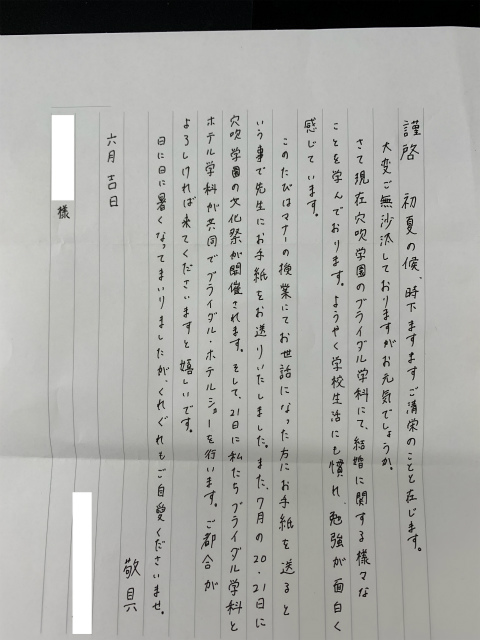 謹啓 初夏の候、時下ますますご清栄のことと存じます。
大変ご無沙汰しておりますがお元気でしょうか。
さて現在穴吹学園のブライダル学科にて、結婚に関する様々な
ことを学んでおります。ようやく学校生活にも慣れ、勉強が面白く
感じています。
このたびはマナーの授業にてお世話になった方にお手紙を送ると
いう事で先生にお手紙をお送りいたしました。また、7月の20・21日に
穴吹学園の文化祭が開催されます。そして、21日に私たちブライダル学科と
ホテル学科が共同でブライダル・ホテルショーを行います。ご都合が
よろしければ来てくださいますと嬉しいです。
日に日に暑くなってまいりましたが、くれぐれもご自愛くださいませ。
敬具
六月吉日
様